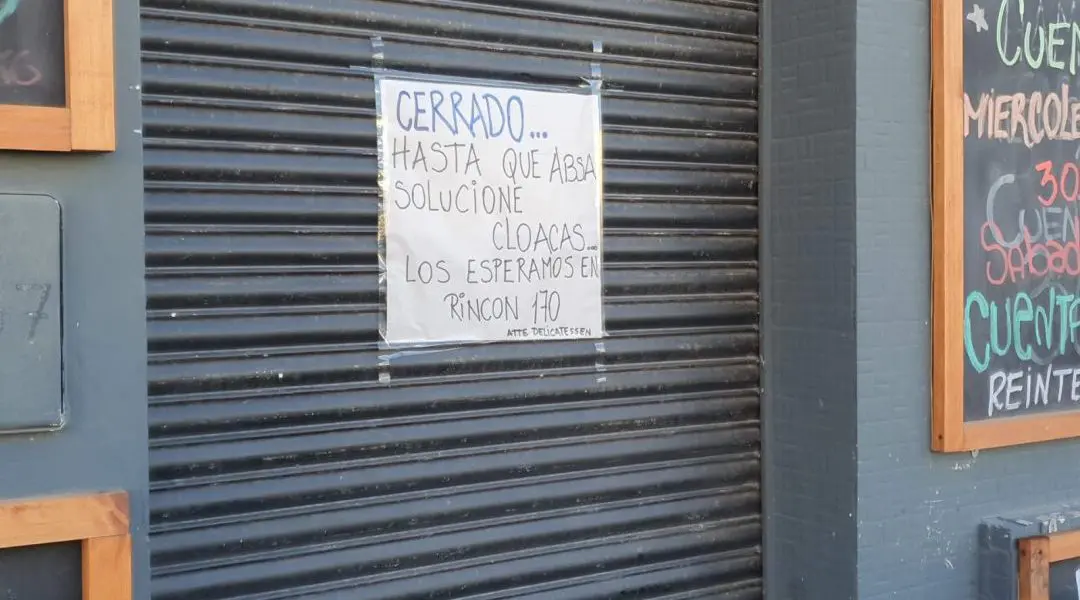 CERRADO...
HASTA QUE ABSA
SOLUCIONE
CLOACAS...
LOS ESPERAMOS EN
RINCON 170
ATTE DELICATESSEN
7
CUEN
MIERCOLE
30
CUEN
Sabad
CUENT
REINTE